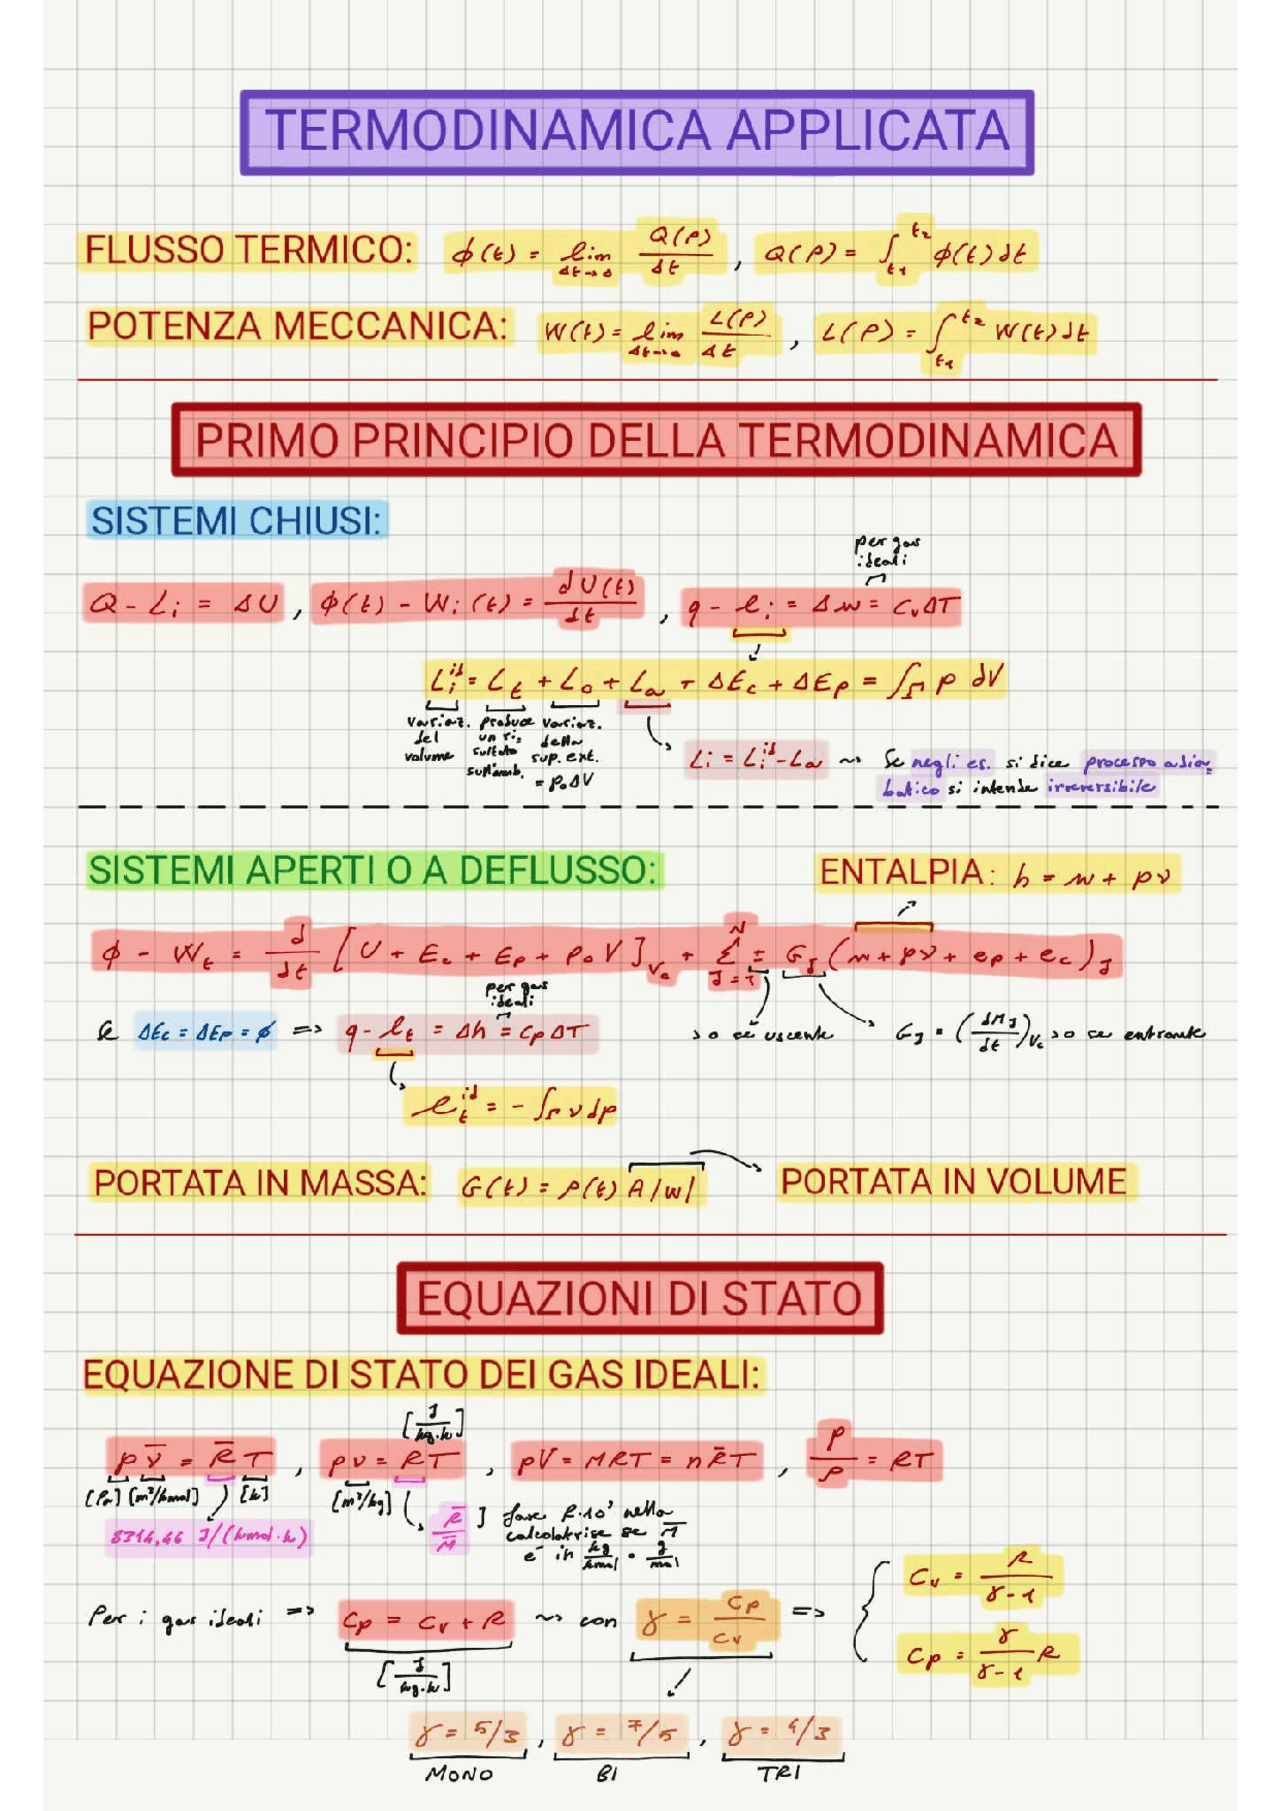 TERMODINAMICA APPLICATA
FLUSSO TERMICO: ϕ(t) = lim Δt→0 Q(P)/Δt , Q(P) = ∫t1^t2 ϕ(t)dt
POTENZA MECCANICA: W(t) = lim Δt→0 L(P)/Δt , L(P) = ∫t1^t2 W(t)dt
PRIMO PRINCIPIO DELLA TERMODINAMICA
SISTEMI CHIUSI:
per gas
ideali
Q - Li = ΔU , ϕ(t) - Wi(t) = dU(t)/dt , q - li = Δu = cvΔT
Li^id = Lt + Lo + La + ΔEc + ΔEp = ∫Γ p dV
variaz. del volume
produce un risultato sull'amb.
variaz. della sup. ext. = poΔV
Li = Li^id - La ~> Se negli es. si dice processo adiabatico si intende irreversibile
SISTEMI APERTI O A DEFLUSSO:
ENTALPIA: h = u + pv
ϕ - Wt = d/dt [U + Ec + Ep + poV]Vc + Σ J=1^N ± GJ (u + pv + ep + ec)J
per gas
ideali
Se ΔEc = ΔEp = ϕ => q - lt = Δh = cpΔT
>0 se uscente
GJ = (dMJ/dt)Vc >0 se entrante
lt^id = - ∫Γ vdp
PORTATA IN MASSA: G(t) = ρ(t) A|w| PORTATA IN VOLUME
EQUAZIONI DI STATO
EQUAZIONE DI STATO DEI GAS IDEALI:
[J/kg·k]
pv̄ = R̄T , pv = RT , pV = MRT = nR̄T , p/ρ = RT
[Pa] [m³/kmol] [k] [m³/kg]
8314,46 J/(kmol·k)
R̄/M̄ ] fare R·10³ nella
calcolatrice se M̄
è in kg/kmol = g/mol
Per i gas ideali => cp = cv + R ~> con γ = cp/cv => { cv = R/γ-1
cp = γ/γ-1 R
[J/kg·k]
γ = 5/3 , γ = 7/5 , γ = 4/3
MONO BI TRI